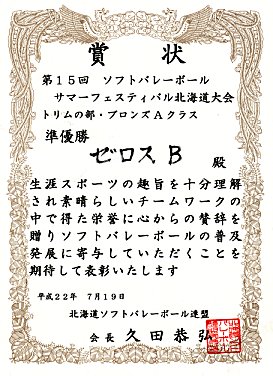 賞状
第15回 ソフトバレーボール
サマーフェスティバル北海道大会
トリムの部・ブロンズAクラス
準優勝
ゼロスB 殿
生涯スポーツの趣旨を十分理解
され素晴らしいチームワークの
中で得た栄誉に心からの賛辞を
贈りソフトバレーボールの普及
発展に寄与していただくことを
期待して表彰いたします
平成22年 7月19日
北海道ソフトバレーボール連盟
会長 久田恭弘